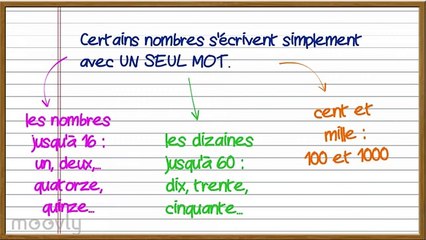 Certains nombres s'écrivent simplement
avec UN SEUL MOT.
les nombres
jusqu'à 16 :
un, deux,...
quatorze,
quinze...
les dizaines
jusqu'à 60 :
dix, trente,
cinquante...
cent et
mille :
100 et 1000
moovly